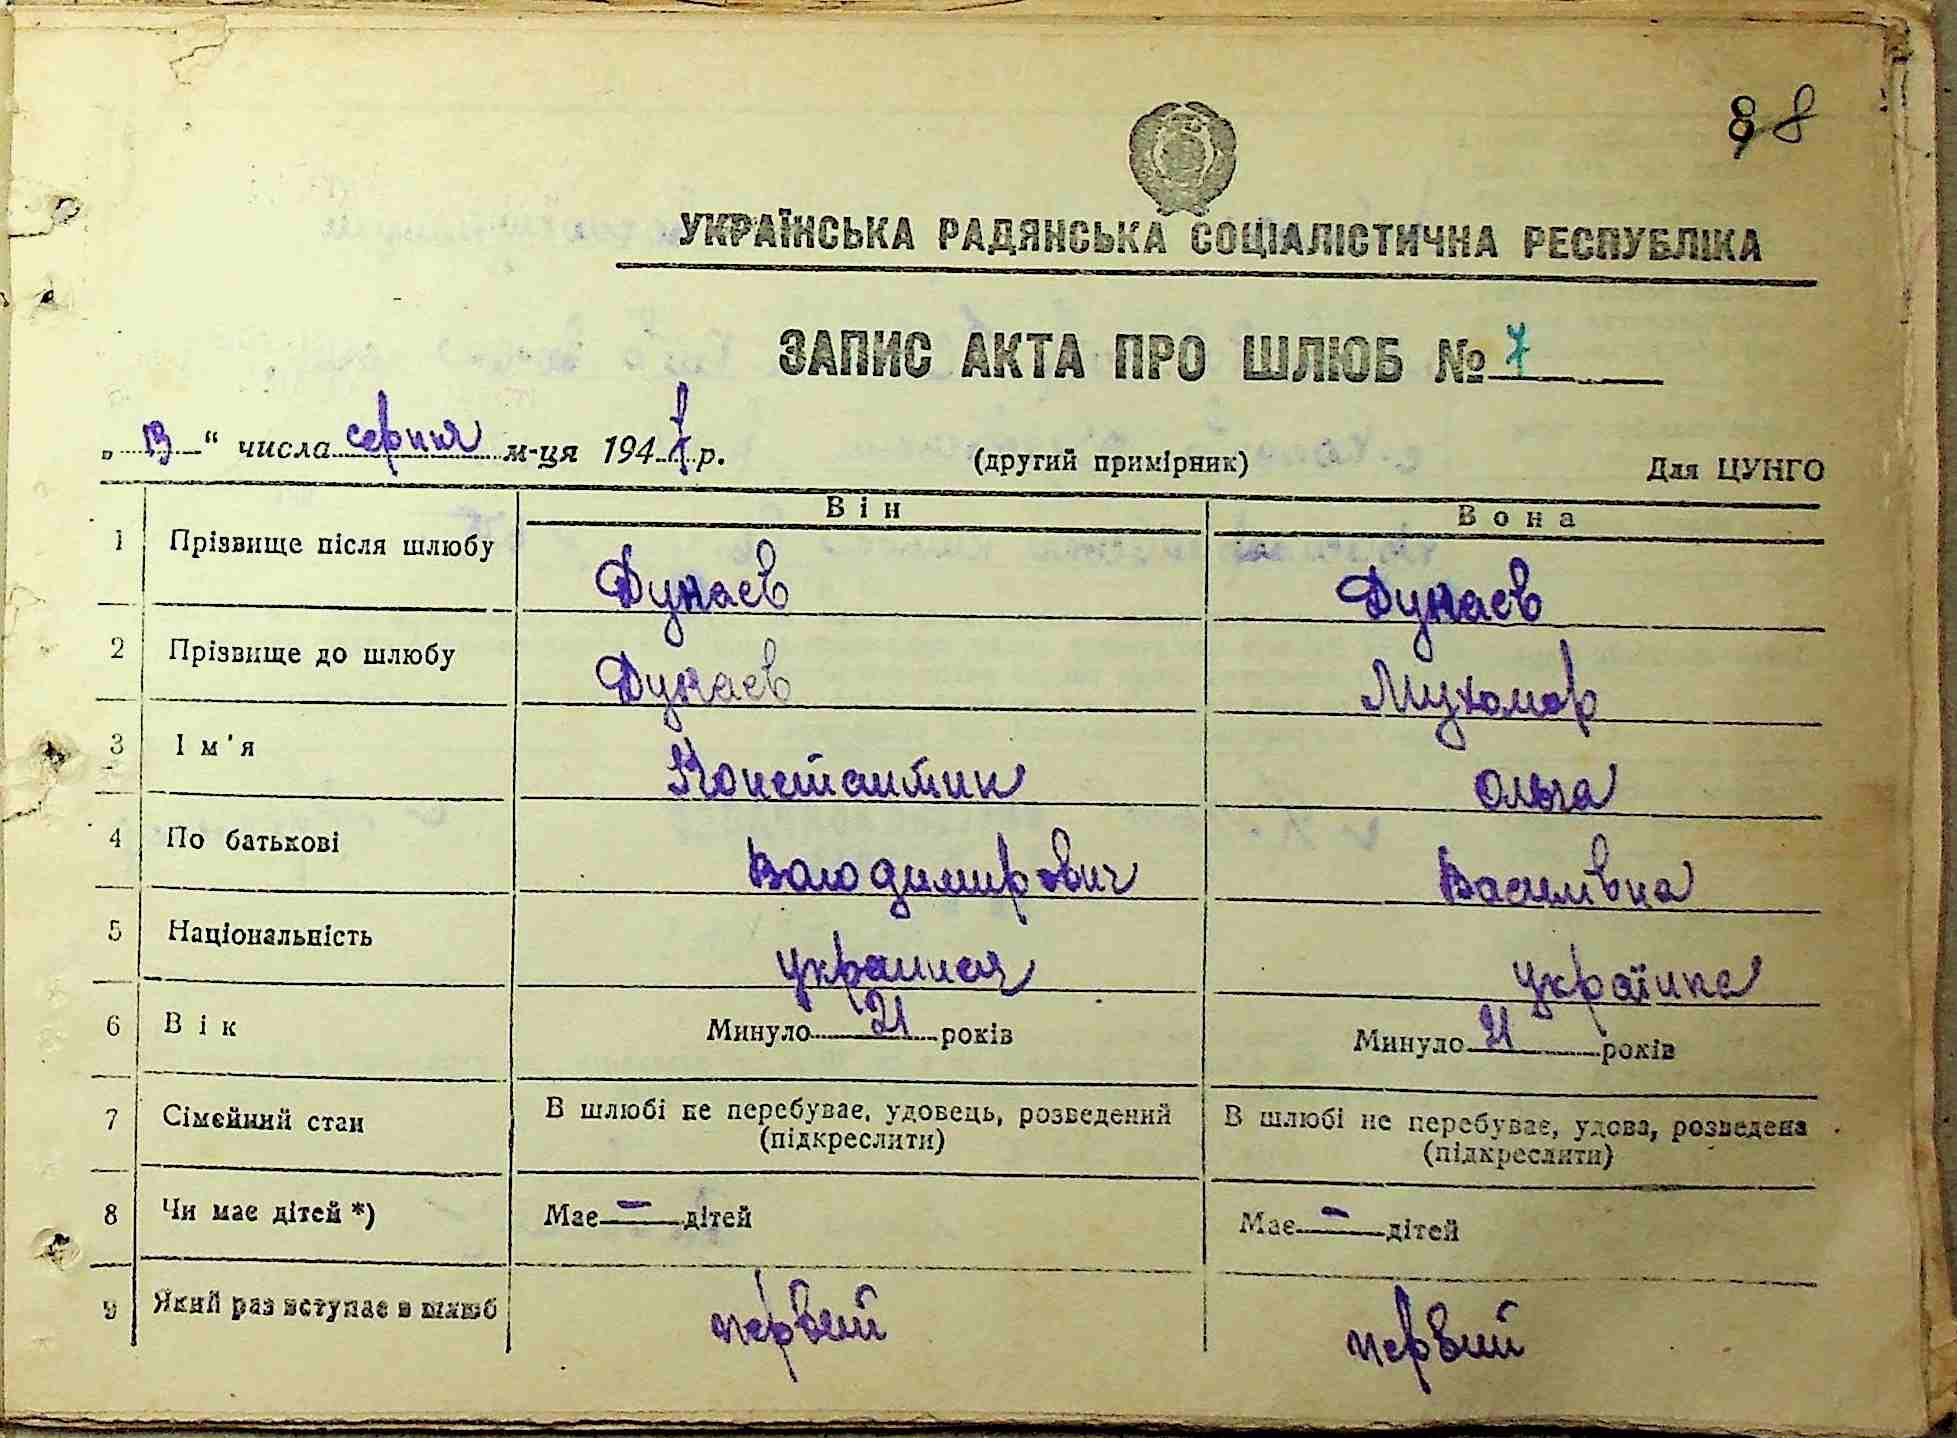 8 8
УКРАЇНСЬКА РАДЯНСЬКА СОЦІАЛІСТИЧНА РЕСПУБЛІКА
ЗАПИС АКТА ПРО ШЛЮБ № 7
„ 13 “ числа серпня м-ця 1947 р. (другий примірник) Для ЦУНГО
Він Вона
1 Прізвище після шлюбу Дунаєв Дунаєв
2 Прізвище до шлюбу Дунаєв Мухомор
3 Ім'я Константин Ольга
4 По батькові Володимирович Василівна
5 Національність українец українка
6 Вік Минуло 21 років Минуло 21 років
7 Сімейний стан В шлюбі не перебуває, удовець, розведений В шлюбі не перебуває, удова, розведена
(підкреслити) (підкреслити)
8 Чи має дітей *) Має – дітей Має – дітей
9 Який раз вступає в шлюб первий первий